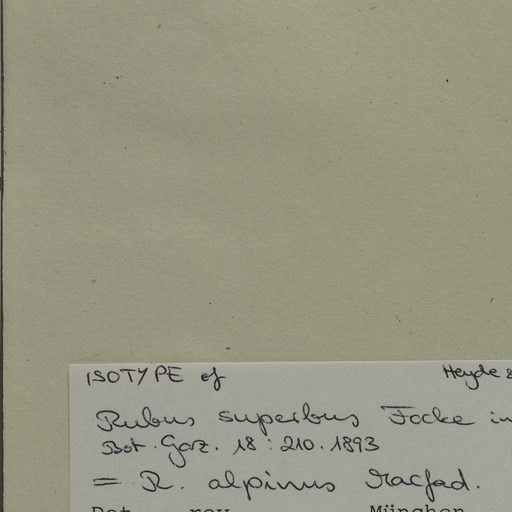 ISOTYPE of Heyde &
Rubus superbus Focke in
Bot. Gaz. 18 : 210. 1893
= R. alpinus Macfad.
Det. rev. München